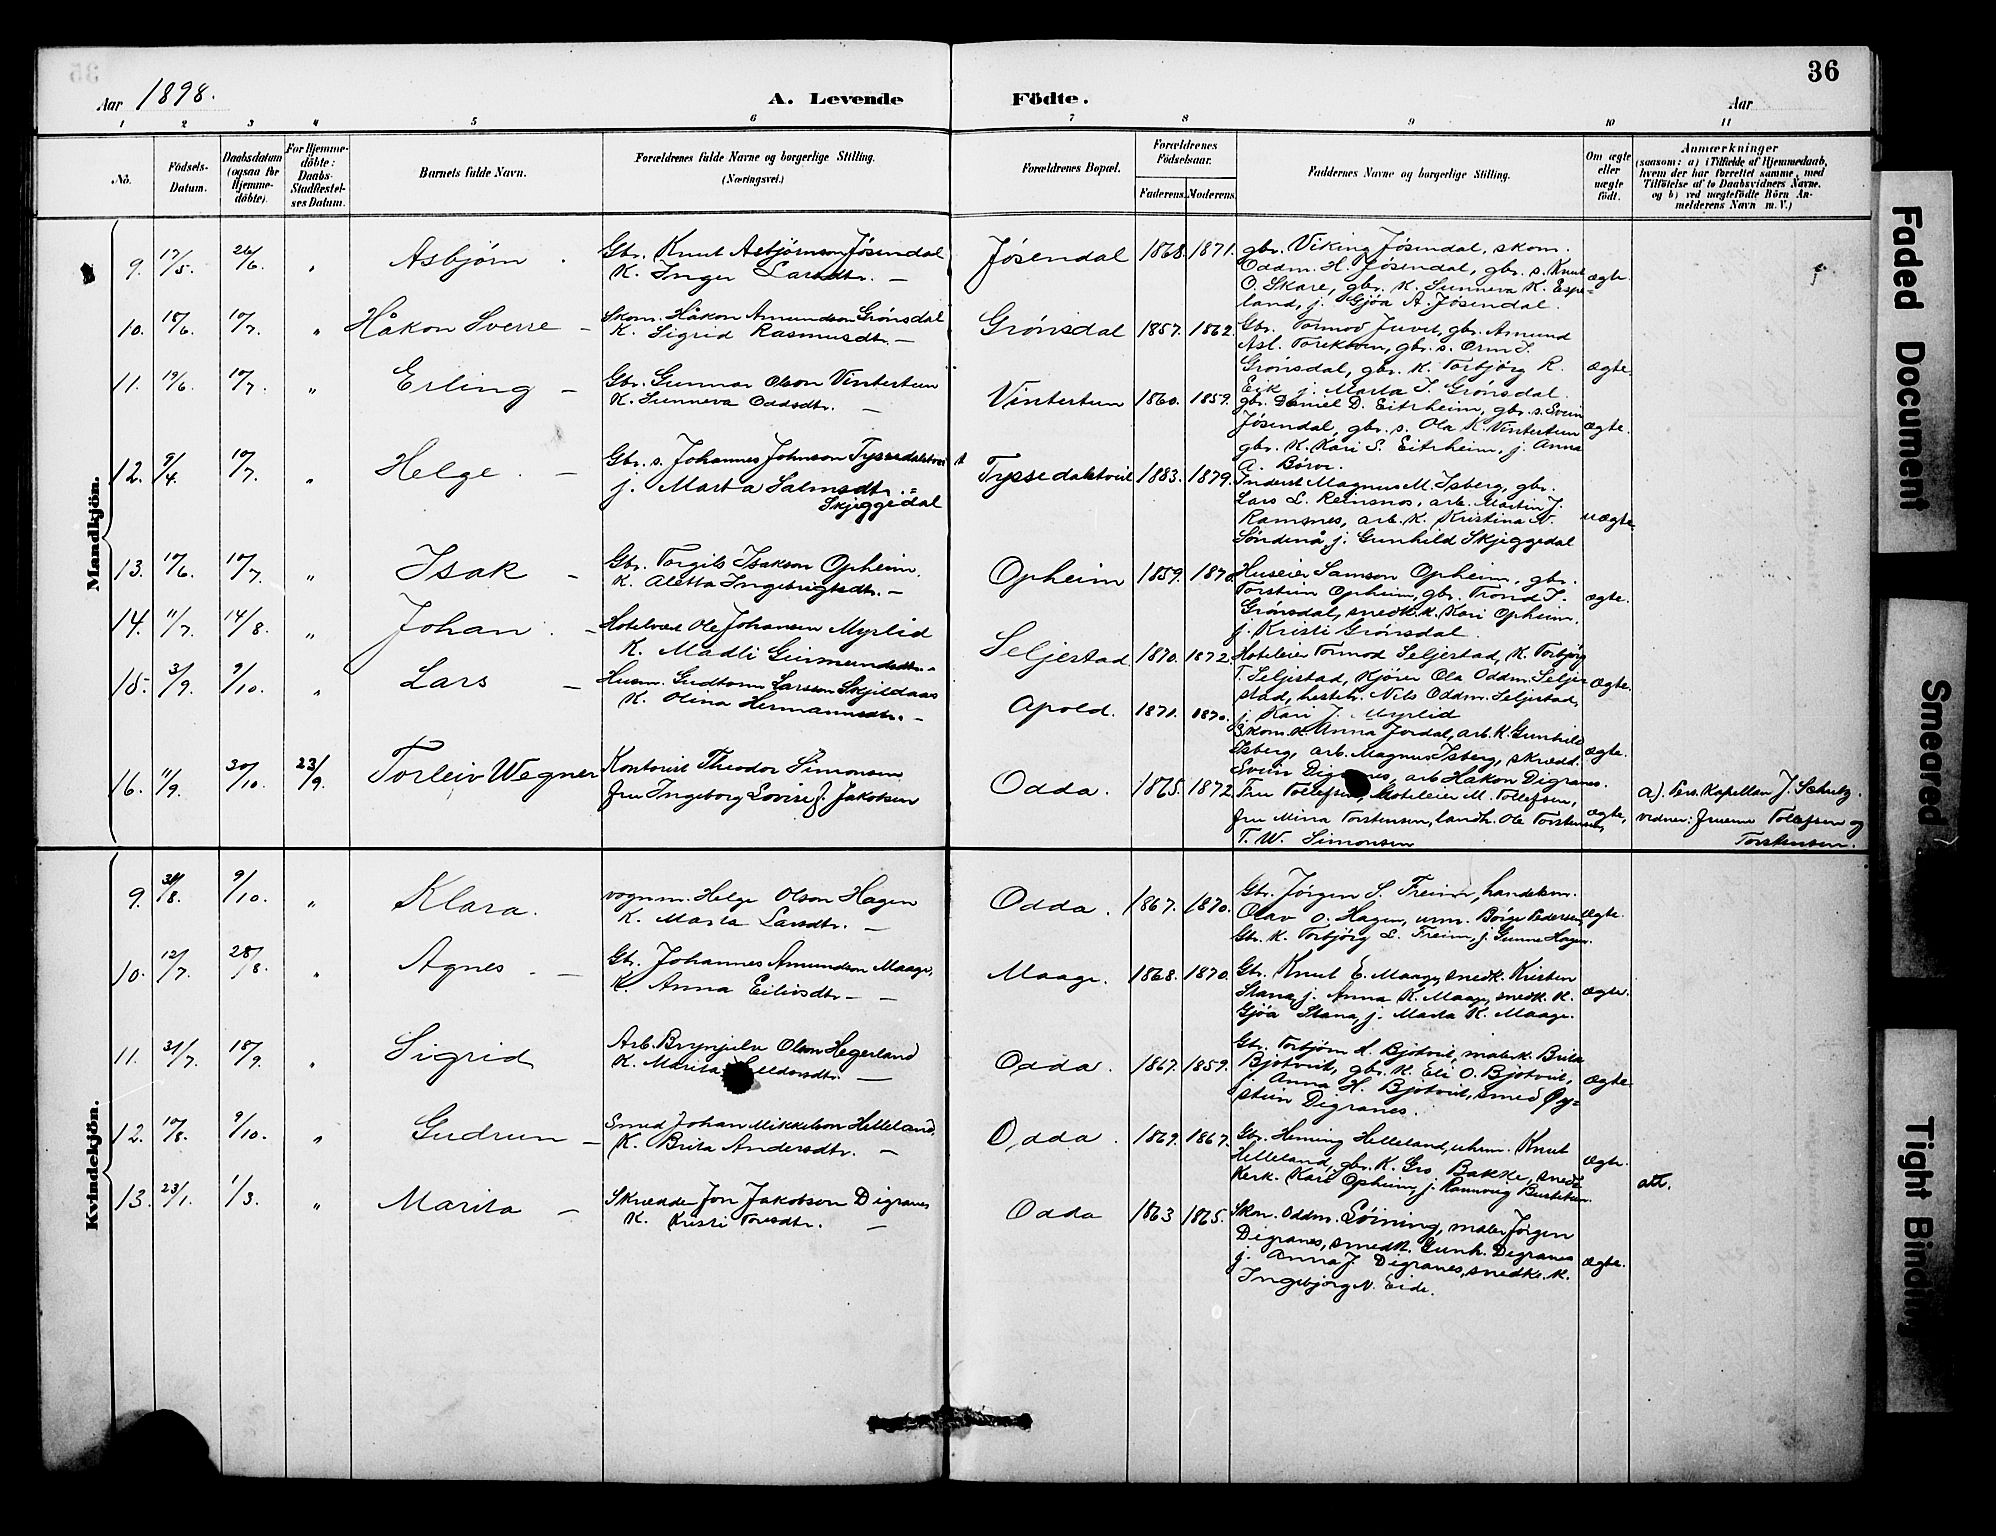 36
Aar 1898.
A. Levende Födte.
Aar
1 2 3 4 5 6 7 8 9 10 11
No.
Födsels-Datum.
Daabsdatum (ogsaa for Hjemme-döbte).
For Hjemme-döbte: Daabs-Stadfæstel-ses Datum.
Barnets fulde Navn.
Forældrenes fulde Navne og borgerlige Stilling. (Næringsvei.)
Forældrenes Bopæl.
Forældrenes Födselsaar.
Faderens. Moderens.
Faddernes Navne og borgerlige Stilling.
Om ægte eller uægte födt.
Anmærkninger
(saasom: a) i Tilfælde af Hjemmedaab, hvem der har forrettet samme, med Tilföielse af to Daabsvidners Navne, og b) ved uægtefödte Börn An-melderens Navn m. V.)
Mandkjön.
9. 17/5. 26/6. " Asbjörn.
Gbr. Knut Asbjörnson Jösendal
K. Inger Larsdtr. —
Jösendal 1868. 1871.
gbr. Viking Jösendal, skom.
Oddm. H. Jösendal, gbr. s. Knut
O. Skare, gbr. K. Sunneva K. Espe=
land, j. Gjöa A. Jösendal.
ægte.
10. 18/6. 10/7. " Håkon Sverre —
Skom. Håkon Amundson Grönsdal
K. Sigrid Rasmusdtr. —
Grönsdal 1857. 1862.
Gbr. Tormod Juvet, gbr. Amund
Asl. , gbr. s. Orm J.
Grönsdal, gbr. K. Torbjörg R.
Eik, j. Marta J. Grönsdal.
ægte.
11. 19/6. 10/7. " Erling —
Gbr. Gunnar Olson Vintertun
K. Sunneva Oddsdtr. —
Vintertun 1860. 1859.
gbr. Daniel D. Eitrheim, gbr. s. Svein
Jösendal, gbr. s. Ola K. Vintertun
gbr. K. Kari S. Eitrheim, j. Anna
A. Börve.
ægte.
12. 9/4. 10/7. " Helge. —
Gbr. s. Johannes Johnson Tyssedalstveit
j. Marta Salmsdtr. =
Skjeggedal
Tyssedalstveit 1883. 1879.
Inderst Magnus M. Isberg, gbr.
Lars L. Reinsnos, arb. Martin J.
Ramsnes, arb. K. Kristina N.
Söndenå, j. Gunhild Skjeggedal
uægte.
13. 10/6. 10/7. " Isak —
Gbr. Torgils Isakson Opheim.
K. Aletta Ingebrigtsdtr. —
Opheim 1859. 1870
Huseier Samson Opheim, gbr.
Torstein Opheim, gbr. Trond J.
Grönsdal, snedk. K. Kari Opheim.
j. Kristi Grönsdal.
ægte.
14. 11/7. 14/8. " Johan. —
Hotelvert Ole Johansen Myrlid
K. Madli Geirmundsdtr. —
Seljestad 1870. 1872.
Hoteleier Tormod Seljestad, K. Torbjörg
T. Seljestad, Kjörer Ola Oddm. Selje=
stad, hesteh. Nils Oddm. Seljestad,
j. Kari J. Myrlid
ægte.
15. 3/9. 9/10. " Lars —
Husm. Gudtorm Larsson Skjeldaas
K. Olina Hermannsdtr. —
Apold. 1871. 1870.
Skom. K. Anna Jordal, arb. K. Gunhild
Isberg, arb. Magnus Isberg, skrædd.
Svein Digranes, arb. Håkon Digranes.
ægte.
16. 11/9. 30/10. 23/9. Torleiv Wegner
Kontorist Theodor Simonsen
fru Ingeborg Lovise f. Jakobsen
Odda. 1865. 1872
Fru Tollefsen, Hoteleier M. Tollefsen,
fru Mina Torstensen, landh. Ole Torstensen,
T. W. Simonsen
ægte,
a). Pers. Kapellan J. Schulz.
vidner: fruerne Tollefsen og
Torstensen.
Kvindekjön.
9. 31/8. 9/10. " Klara.
vognm. Helge Olson Hagen
K. Marta Larsdtr. —
Odda. 1867. 1870.
Gbr. Jörgen S. Freim, handelsm.
Olav O. Hagen, urm. Börge Pedersen,
Gbr. K. Torbjörg L. Freim, j. Gunne Hagen.
ægte.
10. 12/7. 28/8. " Agnes. —
Gbr. Johannes Amundson Maage.
K. Anna Eilivsdtr — —
Maage. 1868. 1870.
Gbr. Knut E. Maage, snedk. Kristen
Stana, j. Anna K. Maage, snedk. K.
Gjöa Stana, j. Marta K. Maage.
ægte.
11. 31/7. 18/9. " Sigrid
Arb. Brynjulv Olson Hegerland
K. Marita —
Odda. 1867. 1859.
Gbr. Torbjörn H. Bjotveit, maler K. Brita
Bjotveit, gbr. K. Eli O. Bjotveit,
j. Anna H. Bjotveit, smed Öy=
stein Digranes.
ægte.
12. 10/8. 9/10. " Gudrun —
Smed Johan Mikkelson Helleland.
K. Brita Andersdtr. —
Odda. 1869. 1867.
Gbr. Heming Helleland, uhrm. Knut
Helleland, gbr. K. Gro Bakke, snedk.
 Kari Opheim, j. Rannveig Bustetun.
ægte.
13. 23/1. 1/3. " Marita —
Skrædder Jon Jakobson Digranes
K. Kristi Toresdtr. —
Odda 1863 1865.
Skom. Oddm. Löining, maler Jörgen
Digranes, smedk. Gunh. Digranes
j. Anna J. Digranes, snedk. K.
Ingebjörg N. Eide.
ægte.
att.
Faded Document
Smeared
Tight Binding